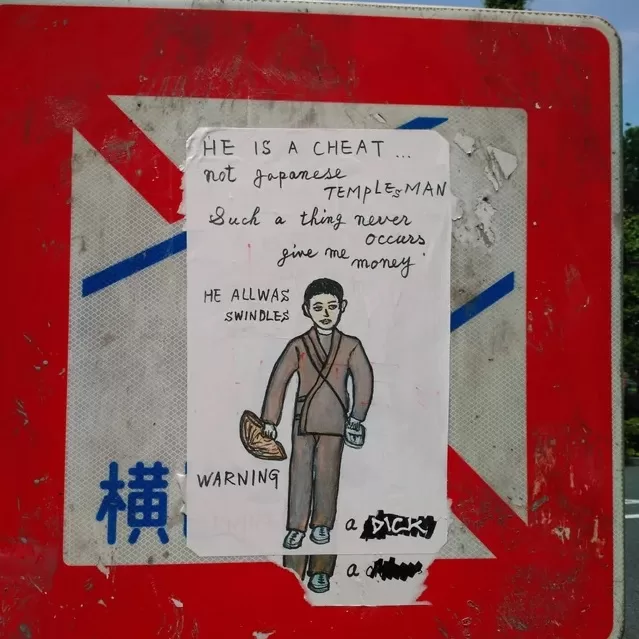 HE IS A CHEAT ...
not Japanese
TEMPLEsMAN
Such a thing never
occurs
give me money
HE ALLWAS
SWINDLES
WARNING
a DICK
a
横